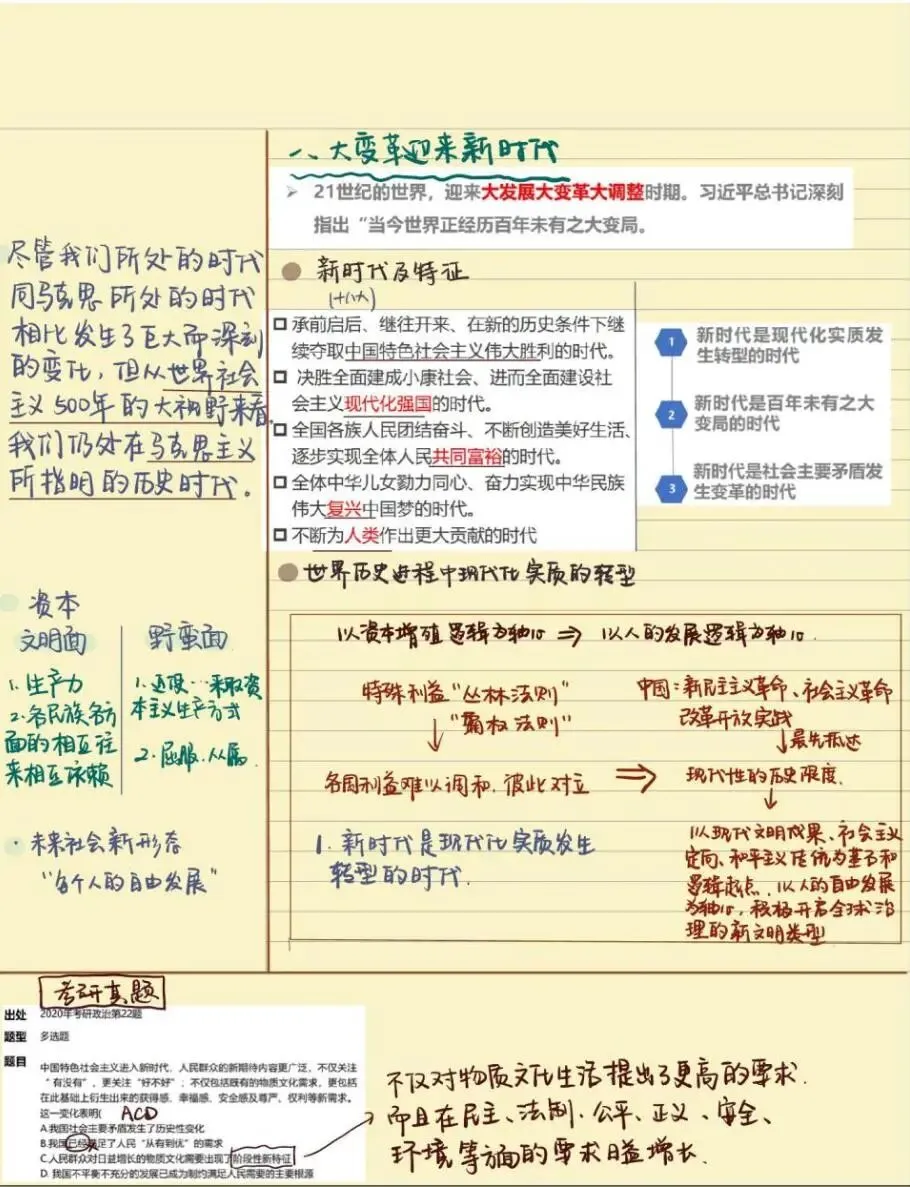 一、大变革迎来新时代
21世纪的世界，迎来大发展大变革大调整时期。习近平总书记深刻
指出“当今世界正经历百年未有之大变局。
尽管我们所处的时代
同马克思所处的时代
相比发生了巨大而深刻
的变化，但从世界社会
主义500年的大视野来看，
我们仍处在马克思主义
所指明的历史时代。
资本
文明面
1.生产力
2.各民族各方
面的相互往
来相互依赖
野蛮面
1.迫使…采取资
本主义生产方式
2.屈服.从属.
未来社会新形态
“每个人的自由发展”
新时代及特征
(十八大)
承前启后、继往开来、在新的历史条件下继
续夺取中国特色社会主义伟大胜利的时代。
决胜全面建成小康社会、进而全面建设社
会主义现代化强国的时代。
全国各族人民团结奋斗、不断创造美好生活、
逐步实现全体人民共同富裕的时代。
全体中华儿女勠力同心、奋力实现中华民族
伟大复兴中国梦的时代。
不断为人类作出更大贡献的时代
1
新时代是现代化实质发
生转型的时代
2
新时代是百年未有之大
变局的时代
3
新时代是社会主要矛盾发
生变革的时代
世界历史进程中现代化实质的转型
以资本增殖逻辑为轴心 ⇒ 以人的发展逻辑为轴心.
特殊利益“丛林法则”
“霸权法则”
↓
各国利益难以调和.彼此对立 ⇒
中国：新民主主义革命、社会主义革命
改革开放实践
↓最先抵达
现代性的历史限度.
↓
以现代文明成果、社会主义
定向、和平主义传统为基础和
逻辑起点.以人的自由发展
为轴心，积极开启全球治
理的新文明类型
1.新时代是现代化实质发生
转型的时代.
考研真题
出处 2020年考研政治第22题
题型 多选题
题目 中国特色社会主义进入新时代，人民群众的新期待内容更广泛，不仅关注
“有没有”，更关注“好不好”；不仅包括既有的物质文化需求，更包括
在此基础上衍生出来的获得感、幸福感、安全感及尊严、权利等新需求。
这一变化表明( ACD
A.我国社会主要矛盾发生了历史性变化
B.我国已经满足了人民“从有到优”的需求
C.人民群众对日益增长的物质文化需要出现了阶段性新特征
D. 我国不平衡不充分的发展已成为制约满足人民需要的主要根源
不仅对物质文化生活提出了更高的要求.
而且在民主、法制.公平、正义、安全、
环境等方面的要求日益增长.